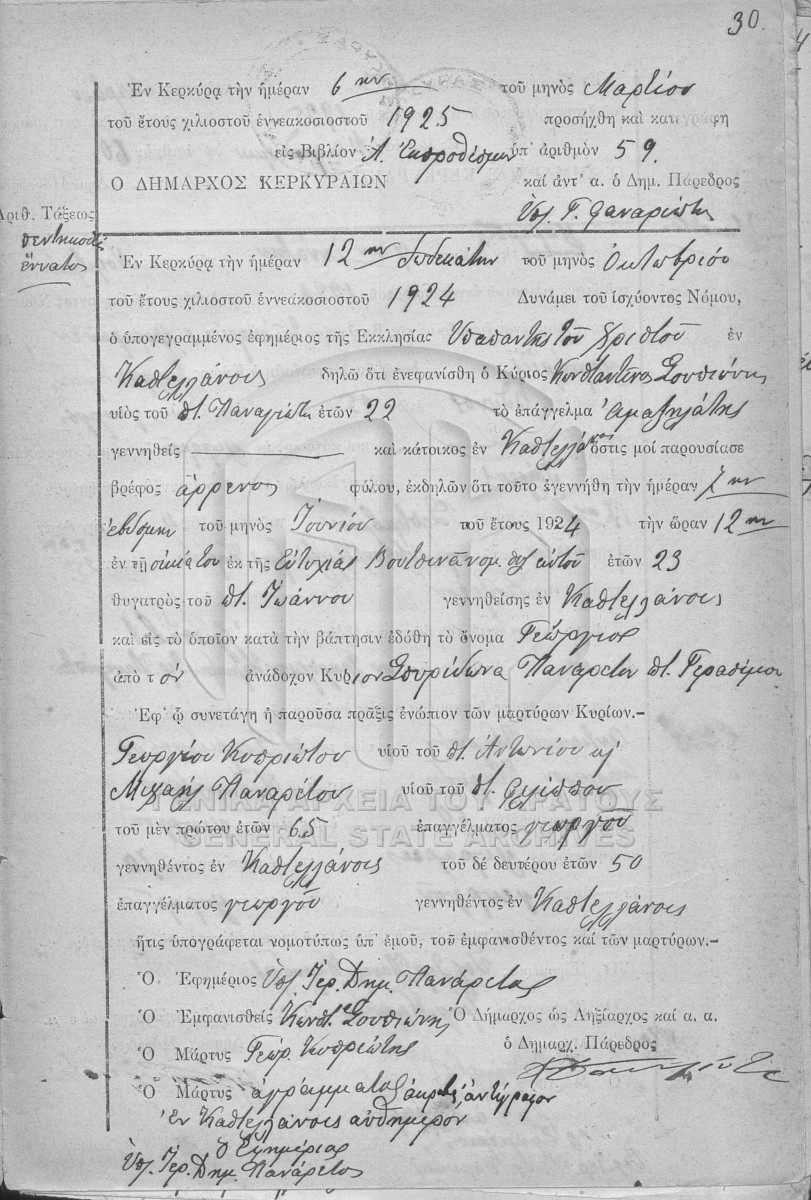 30.
Ἐν Κερκύρᾳ τὴν ἡμέραν 6ην τοῦ μηνὸς Μαρτίου
τοῦ ἔτους χιλιοστοῦ ἐννεακοσιοστοῦ 1925 προσήχθη καὶ κατεγράφη
εἰς Βιβλίον Α. Ἐκπροθέσμων ὑπ' ἀριθμὸν 59.
Ο ΔΗΜΑΡΧΟΣ ΚΕΡΚΥΡΑΙΩΝ καὶ ἀντ' α. ὁ Δημ. Πάρεδρος
Ὑπ. Γ. Φαναριώτης
Ἀριθ. Τάξεως
πεντηκοστὸς
ἔννατος
Ἐν Κερκύρᾳ τὴν ἡμέραν 12ην δωδεκάτην τοῦ μηνὸς Ὀκτωβρίου
τοῦ ἔτους χιλιοστοῦ ἐννεακοσιοστοῦ 1924 Δυνάμει τοῦ ἰσχύοντος Νόμου,
ὁ ὑπογεγραμμένος ἐφημέριος τῆς Ἐκκλησίας Ὑπαπαντῆς τοῦ Χριστοῦ ἐν
Καστελλάνοις δηλῶ ὅτι ἐνεφανίσθη ὁ Κύριος Κωνσταντῖνος
υἱὸς τοῦ π. Παναγιώτη ἐτῶν 22 τὸ ἐπάγγελμα ἁμαξηλάτης
γεννηθεὶς καὶ κάτοικος ἐν Καστελλάνοις ὅστις μοὶ παρουσίασε
βρέφος ἄρρενος φύλου, ἐκδηλῶν ὅτι τοῦτο ἐγεννήθη τὴν ἡμέραν 7ην
ἑβδόμην τοῦ μηνὸς Ἰουνίου τοῦ ἔτους 1924 τὴν ὥραν 12ην
ἐν τῇ οἰκίᾳ του ἐκ τῆς Εὐτυχίας νομ. συζ. αὐτοῦ ἐτῶν 23
θυγατρὸς τοῦ π. Ἰωάννου γεννηθείσης ἐν Καστελλάνοις
καὶ εἰς τὸ ὁποῖον κατὰ τὴν βάπτισιν ἐδόθη τὸ ὄνομα Γεώργιος
ἀπὸ τὸν ἀνάδοχον Κύριον Σπυρίδωνα Πανάρετον π. Γερασίμου
Ἐφ' ᾧ συνετάγη ἡ παροῦσα πρᾶξις ἐνώπιον τῶν μαρτύρων Κυρίων.–
Γεωργίου Κυπριώτου υἱοῦ τοῦ π. Ἀντωνίου κ
Μιχαὴλ Παναρέτου υἱοῦ τοῦ π. Φιλίππου
ΓΕΝΙΚΑ ΑΡΧΕΙΑ ΤΟΥ ΚΡΑΤΟΥΣ
GENERAL STATE ARCHIVES
τοῦ μὲν πρώτου ἐτῶν 65 ἐπαγγέλματος γεωργοῦ
γεννηθέντος ἐν Καστελλάνοις τοῦ δὲ δευτέρου ἐτῶν 50
ἐπαγγέλματος γεωργοῦ γεννηθέντος ἐν Καστελλάνοις
ἥτις ὑπογράφεται νομοτύπως ὑπ' ἐμοῦ, τοῦ ἐμφανισθέντος καὶ τῶν μαρτύρων.–
Ὁ Ἐφημέριος Ὑπ. Ἱερ. Δημ. Πανάρετος
Ὁ Ἐμφανισθεὶς Κωνστ. Ὁ Δήμαρχος ὡς Ληξίαρχος καὶ α. α.
Ὁ Μάρτυς Γεώρ. Κυπριώτης ὁ Δημαρχ. Πάρεδρος
Ὁ Μάρτυς ἀγράμματος ἀκριβὲς ἀντίγραφον
ἐν Καστελλάνοις αὐθημερόν
ὁ Ἐφημέριος
Ὑπ. Ἱερ. Δημ. Πανάρετος